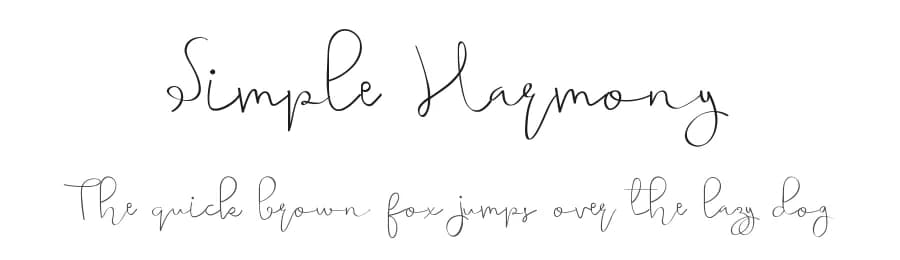 Simple Harmony
The quick brown fox jumps over the lazy dog